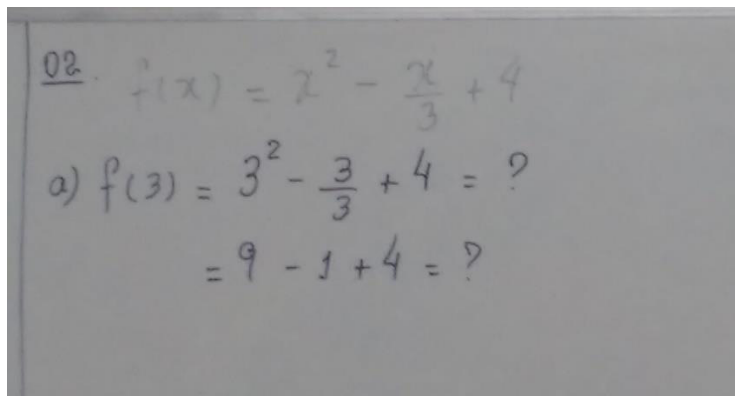 02. f(x) = x² - x/3 + 4
a) f(3) = 3² - 3/3 + 4 = ?
= 9 - 1 + 4 = ?